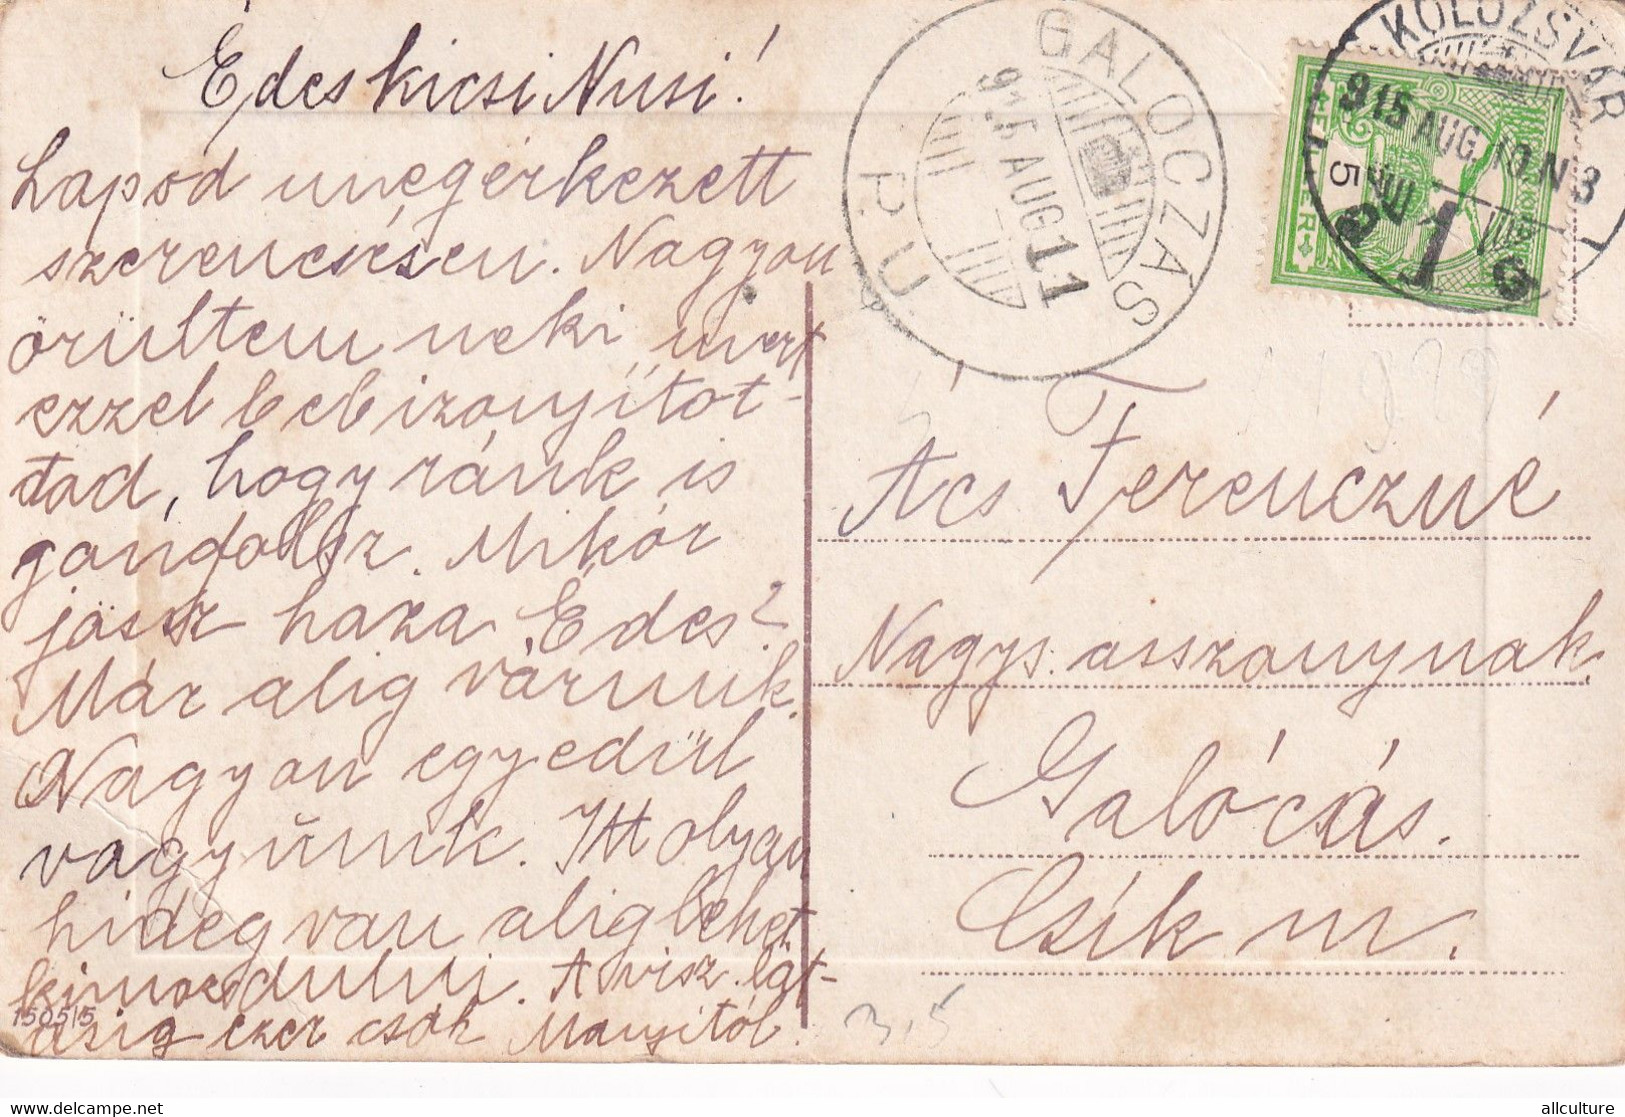 Édes kicsi Nusi!
Lapod megérkezett
szerencsésen. Nagyon
örültem neki, mert
ezzel bebizonyítot-
tad, hogy ránk is
gondolsz. Mikor
jössz haza Édes?
Már alig várunk.
Nagyon egyedül
vagyunk. Itt olyan
hideg van alig lehet
kimozdulni. A visz. lát-
ásig ezer csók Manyitól.
15051/5
GALOCZÁS
915 AUG 11
P.U.
KOLOZSVÁR
915 AUG. 10. N 3
5
Ács Ferenczné
Nagys. asszonynak
Galócás.
Csík m.
3,5
Delcampe.net
allculture